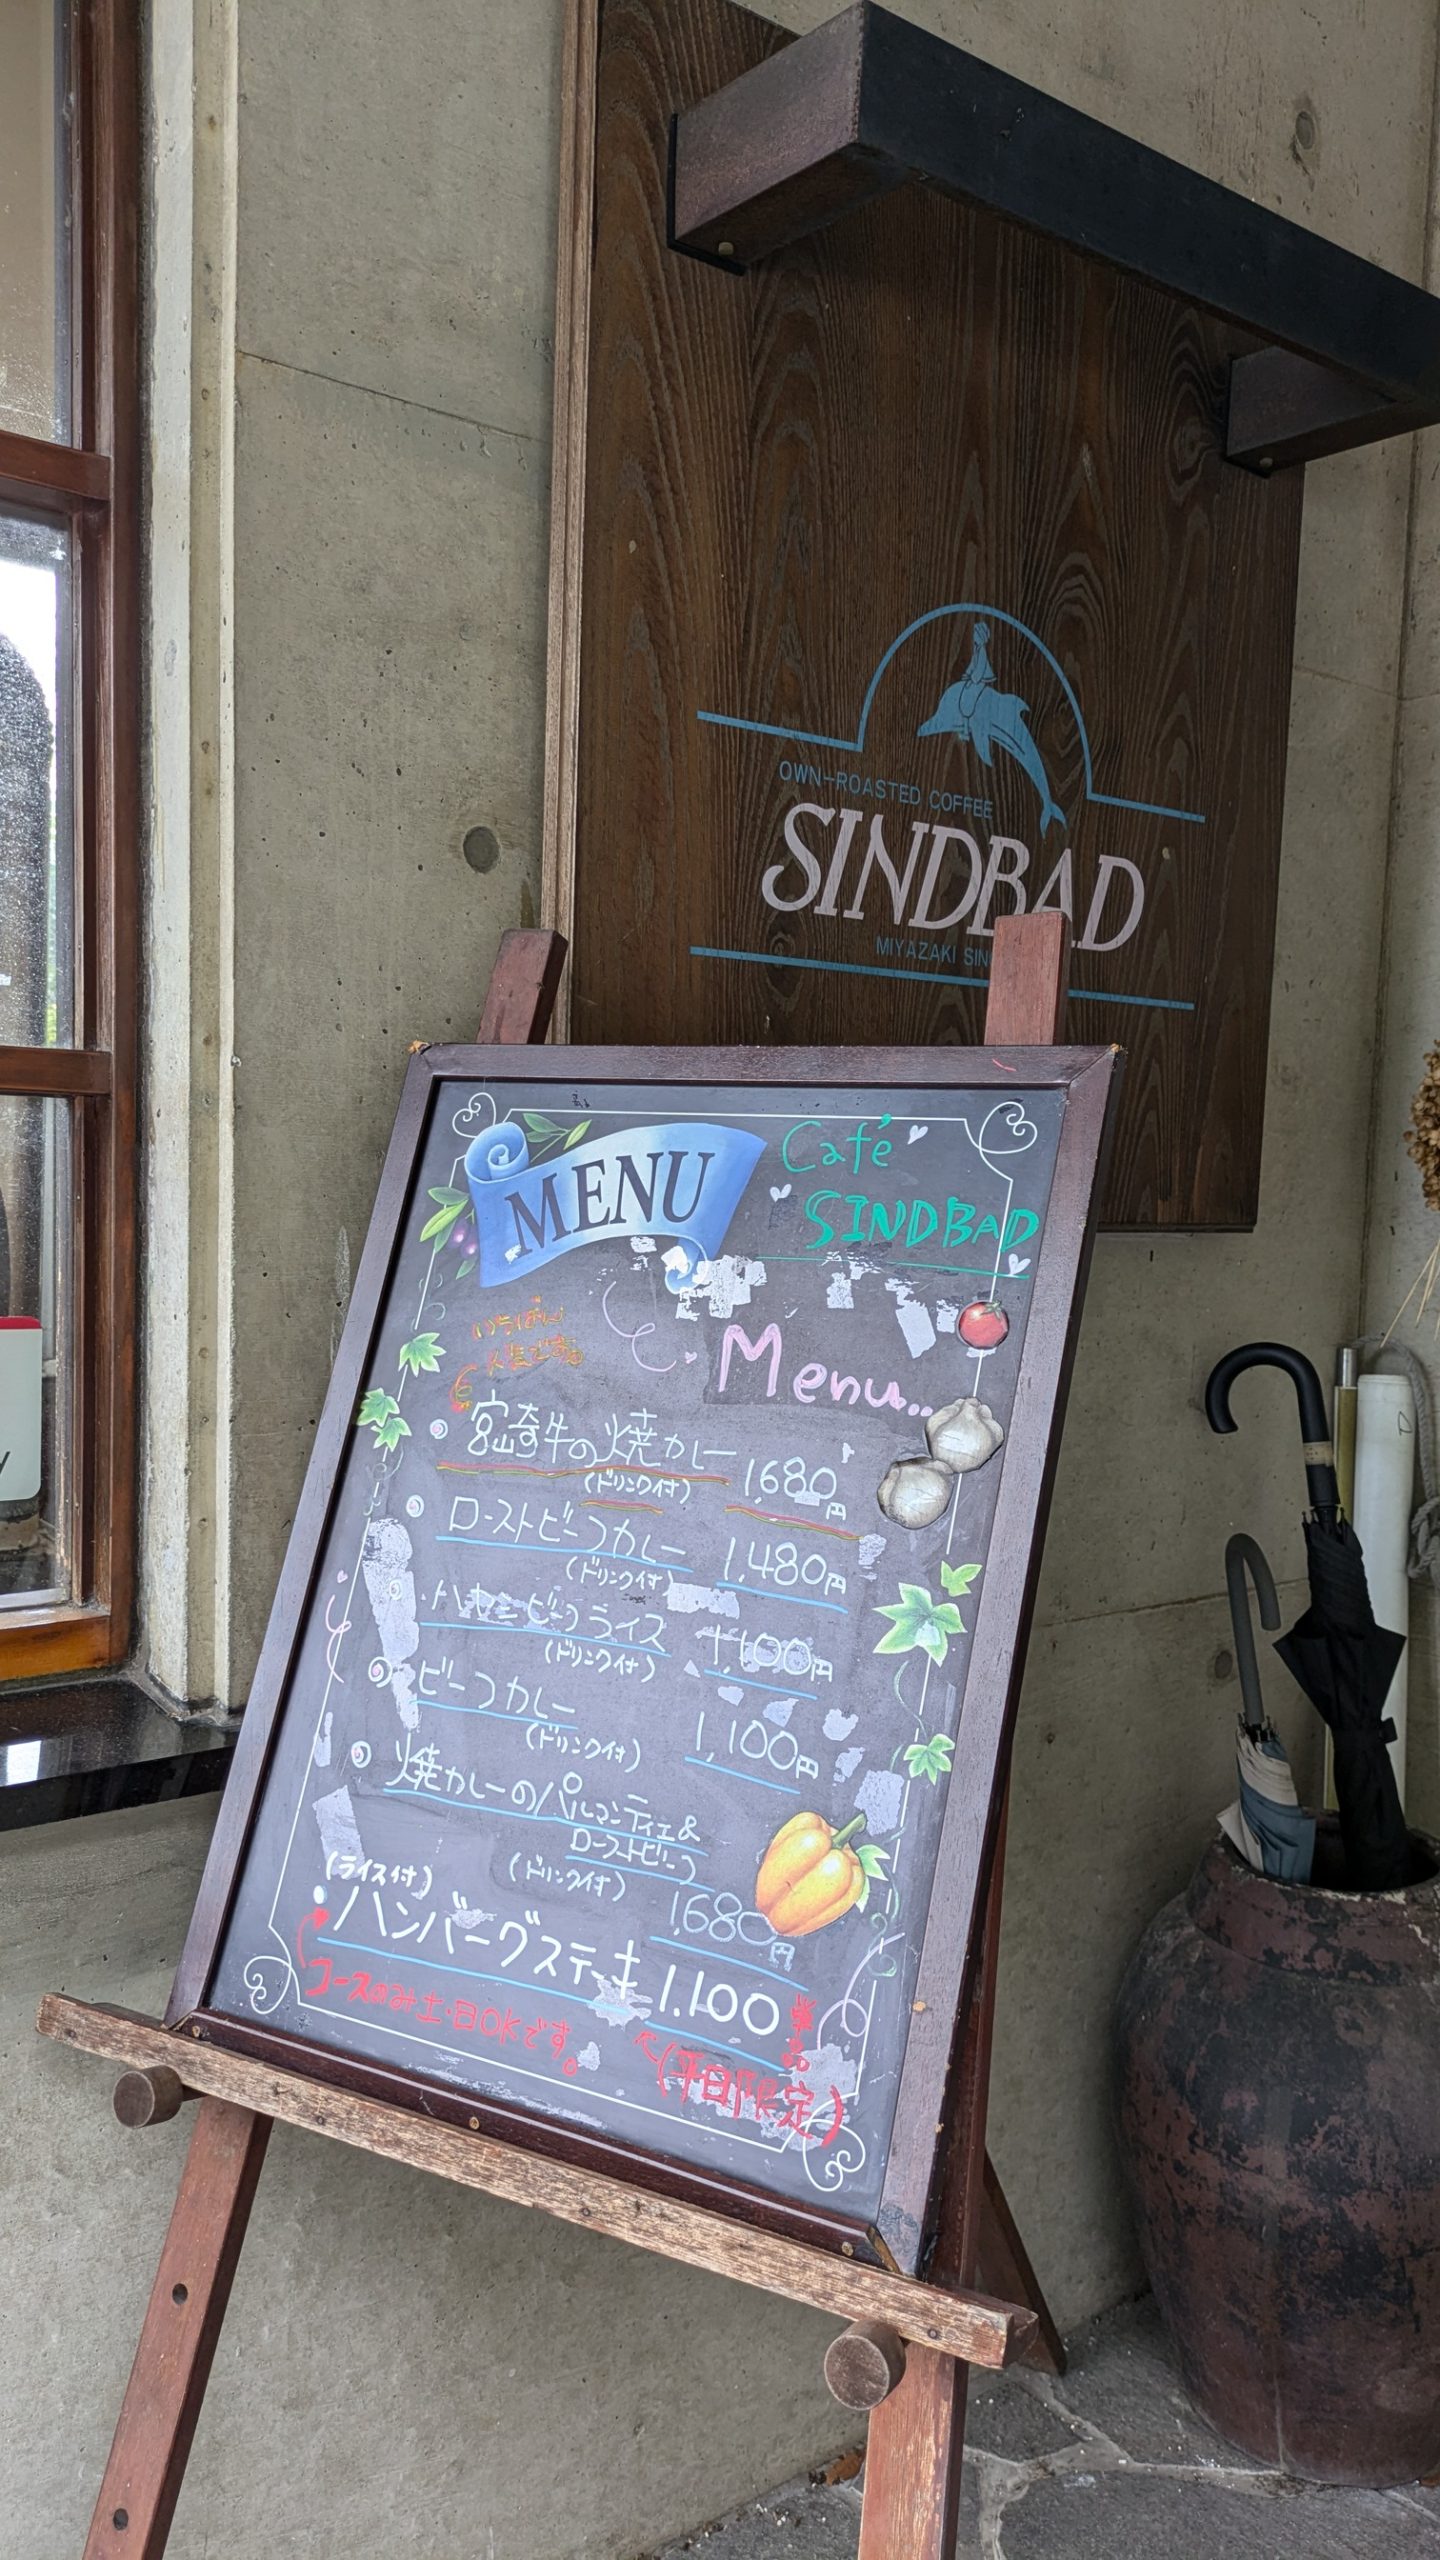 OWN-ROASTED COFFEE
SINDBAD
MIYAZAKI
MENU
Café
SINDBAD
Menu..
いちばん
人気です。
宮崎牛の焼カレー
(ドリンク付) 1,680円
ローストビーフカレー
(ドリンク付) 1,480円
ハヤシビーフライス
(ドリンク付) 1,100円
ビーフカレー
(ドリンク付) 1,100円
焼カレーのパルマンティエ&
ローストビーフ
(ドリンク付) 1,680円
(ライス付)
・ハンバーグステーキ 1.100
コースのみ土・日OKです。
(平日限定)